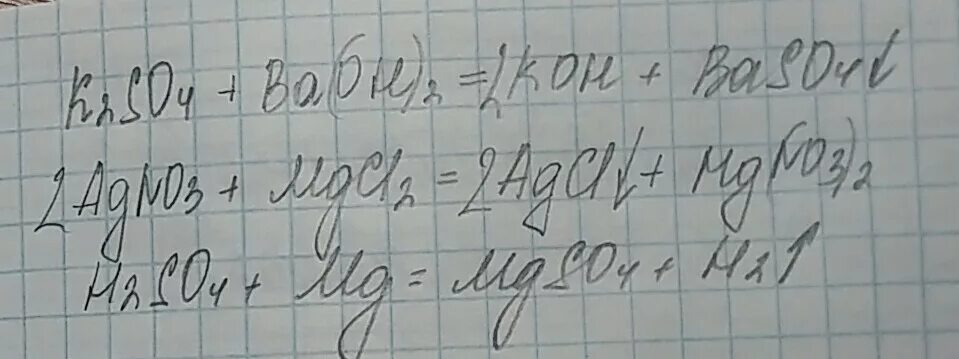 K₂SO₄ + Ba(OH)₂ = 2KOH + BaSO₄↓
2AgNO₃ + MgCl₂ = 2AgCl↓ + Mg(NO₃)₂
H₂SO₄ + Mg = MgSO₄ + H₂↑